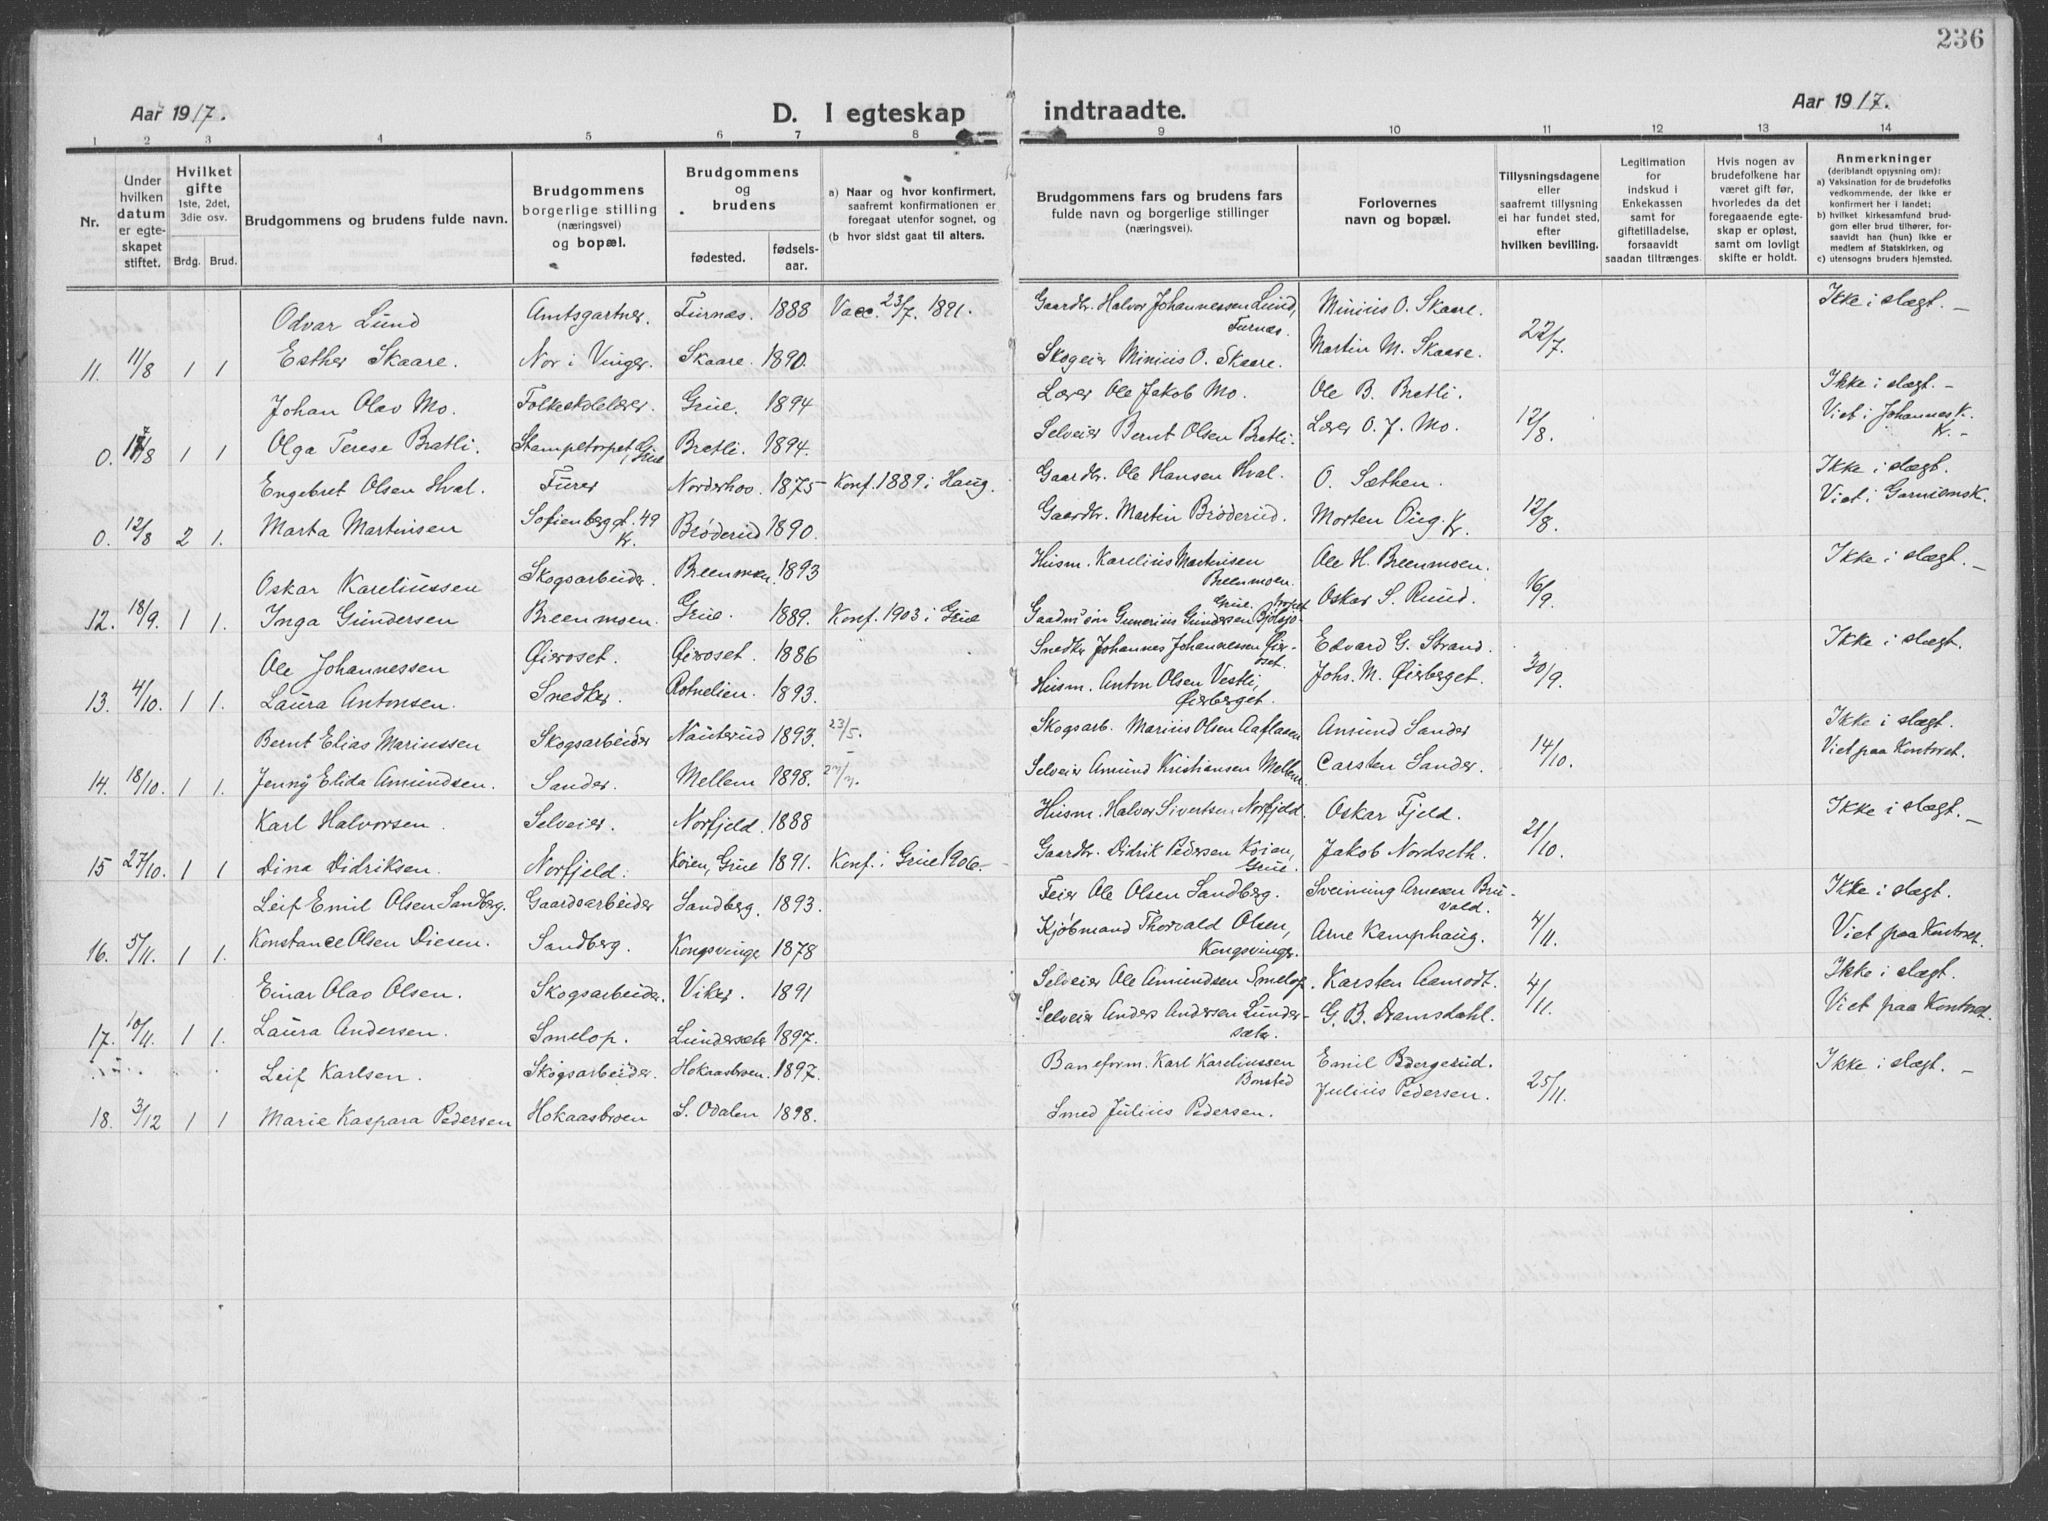 236
Aar 1917.
D. I egteskap indtraadte.
Aar 1917.
1 2 3 4 5 6 7 8 9 10 11 12 13 14
Nr.
Under hvilken datum er egteskapet stiftet.
Hvilket gifte 1ste, 2det, 3die osv.
Brdg. Brud.
Brudgommens og brudens fulde navn.
Brudgommens borgerlige stilling (næringsvei) og bopæl.
Brudgommens og brudens
fødested.
fødsels-aar.
a) Naar og hvor konfirmert, saafremt konfirmationen er foregaat utenfor sognet, og
(b hvor sidst gaat til alters.
Brudgommens fars og brudens fars fulde navn og borgerlige stillinger (næringsvei).
Forlovernes navn og bopæl.
Tillysningsdagene eller saafremt tillysning ei har fundet sted, efter hvilken bevilling.
Legitimation for indskud i Enkekassen samt for giftetilladelse, forsaavidt saadan tiltrænges
Hvis nogen av brudefolkene har været gift før, hvorledes da det foregaaende egteskap er opløst, samt om lovligt skifte er holdt.
Anmerkninger (deriblandt opysning om):
a) Vaksination for de brudefolks vedkommende, der ikke er konfirmert her i landet;
b) hvilket kirkesamfund brudgom eller brud tilhører, forsaavidt han (hun) ikke er medlem af Statskirken, og
c) utensogns bruders hjemsted.
Odvar Lund Amtsgartner. Furnæs. 1888 Vacc. 23/7. 1891. Gaardbr. Halvor Johannessen Lund, Furnæs. Minius O. Skaare. Ikke i slegt. -
11. 11/8 1 1 Esther Skaare. Nor i Vinger. Skaare. 1890. Skogeier Minius O. Skaare. Martin M. Skaare. 22/7.
Johan Olav Mo. Folkeskolelærer. Grue. 1894 Lærer Ole Jakob Mo. Ole B. Bratli. Ikke i slegt. -
0. 17/8 1 1 Olga Terese Bratli. Stampetorpet, Grue Bratli. 1894. Selveier Bernt Olsen Bratli. Lærer O. J. Mo. 12/8. Viet i Johannes K. Kr. -
Engebret Olsen Hval. Furer Norderhov. 1875 - Konf. 1889 i Haug. Gaardbr. Ole Hansen Hval. O. Sæthen. Ikke i slegt.
0. 12/8 2 1. Marta Martinsen Sofienberggt. 49 Kr. Brøderud 1890. Gaardbr. Martin Brøderud. Morten Oug. Kr. 12/8. Viet i Garnisonsk.
Oskar Kareliussen Skogsarbeider. Breenmoen. 1893 Husm. Karelius Martinsen Breenmoen. Ole H. Breenmoen. Ikke i slegt. -
12. 18/9. 1 1. Inga Gundersen Breenmoen. Grue. 1889. Konf. 1903 i Grue Gunerius Gundersen Grue. Oskar S. Ruud. 16/9.
Ole Johannessen Øieroset. Øieroset. 1886 Snedker Johannes Johannessen Øieroset. Edvard G. Strand. Ikke i slegt.
13. 4/10. 1 1. Laura Antonsen. Snedker. Rotnelien. 1893. Husm. Anton Olsen Vestli, Øierberget. Johs. M. Øierberget. 30/9.
Bernt Elias Mariussen Skogsarbeider Nauterud 1893. 23/5. Skogsarb. Marius Olsen Aaflaaen Amund Sander Ikke i slegt.
14. 18/10. 1 1. Jenny Elida Amundsen. Sander. Mellem 1898. Selveier Amund Kristiansen Mellem Carsten Sander. 14/10. Viet paa Kontoret.
Karl Halvorsen. Selveier. Norfjeld. 1888 Husm. Halvor Sivertsen Norfjeld. Oskar Fjeld. Ikke i slegt. -
15 27/10. 1 1 Dina Didriksen. Norfjeld. Koien, Grue 1891. Konf. i Grue 1906. Gaardbr. Didrik Pedersen Koien, Grue. Jakob Nordseth. 21/10.
Leif Emil Olsen Sandberg. Gaardsarbeider Sandberg. 1893. Feier Ole Olsen Sandberg. Sveinung Arnesen Bruvald. Ikke i slegt.
16. 5/11. 1 1. Konstance Olsen Diesen. Sandberg. Kongsvinger 1878 Kjøbmand Thorvald Olsen, Kongsvinger. Arne Kamphaug. 4/11. Viet paa Kontoret.
Einar Olav Olsen. Skogsarbeider. Viker. 1891 Selveier Ole Amundsen Smelop. Karsten Aamodt. Ikke i slegt.
17. 10/11 1 1. Laura Andersen. Smelop. Lundersæter 1897. Selveier Anders Andersen Lundersæter. G. B. Dramsdahl. 4/11. Viet paa Kontoret.
Leif Karlsen. Skogsarbeider. Hokaasbroen. 1897. Baneform. Karl Kareliussen Bonsted Emil Bergerud. Ikke i slegt. -
18. 3/12 1 1 Marie Kaspara Pedersen Hokaasbroen S. Odalen 1898. Smed Julius Pedersen. Julius Pedersen. 25/11.